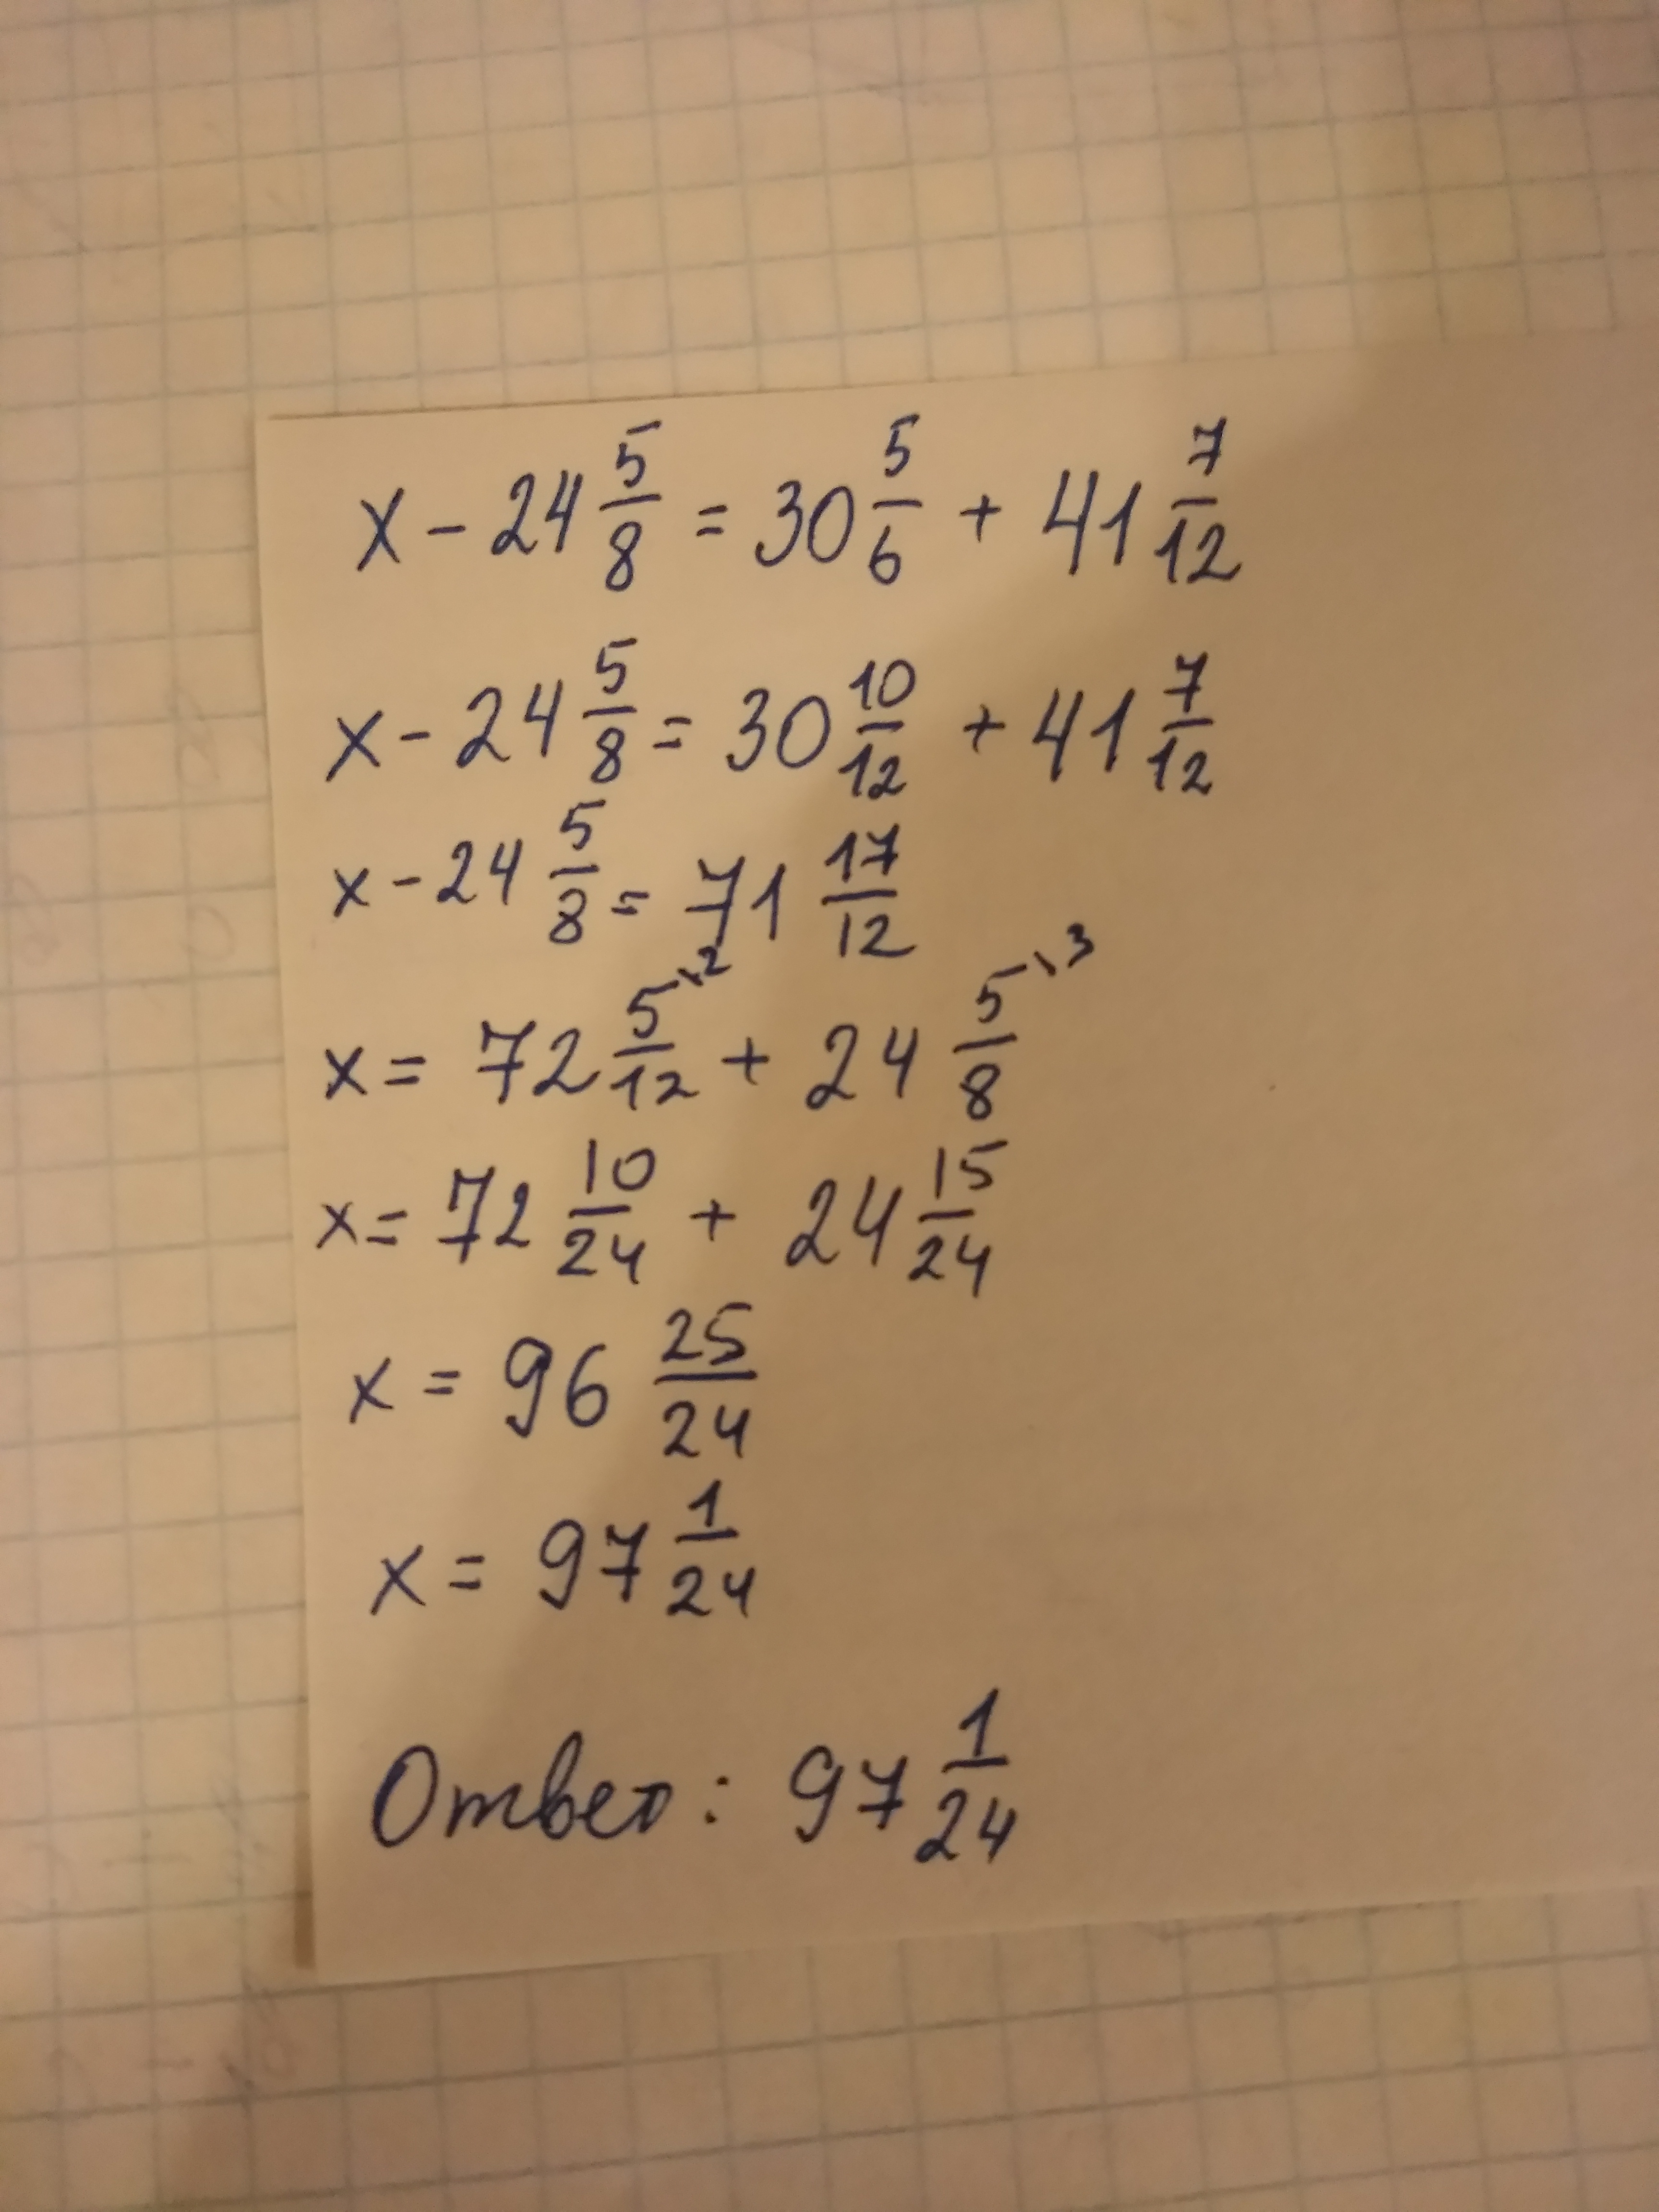 x - 24 5/8 = 30 5/6 + 41 7/12
x - 24 5/8 = 30 10/12 + 41 7/12
x - 24 5/8 = 71 17/12
x = 72 5\2/12 + 24 5\3/8
x = 72 10/24 + 24 15/24
x = 96 25/24
x = 97 1/24
Ответ: 97 1/24